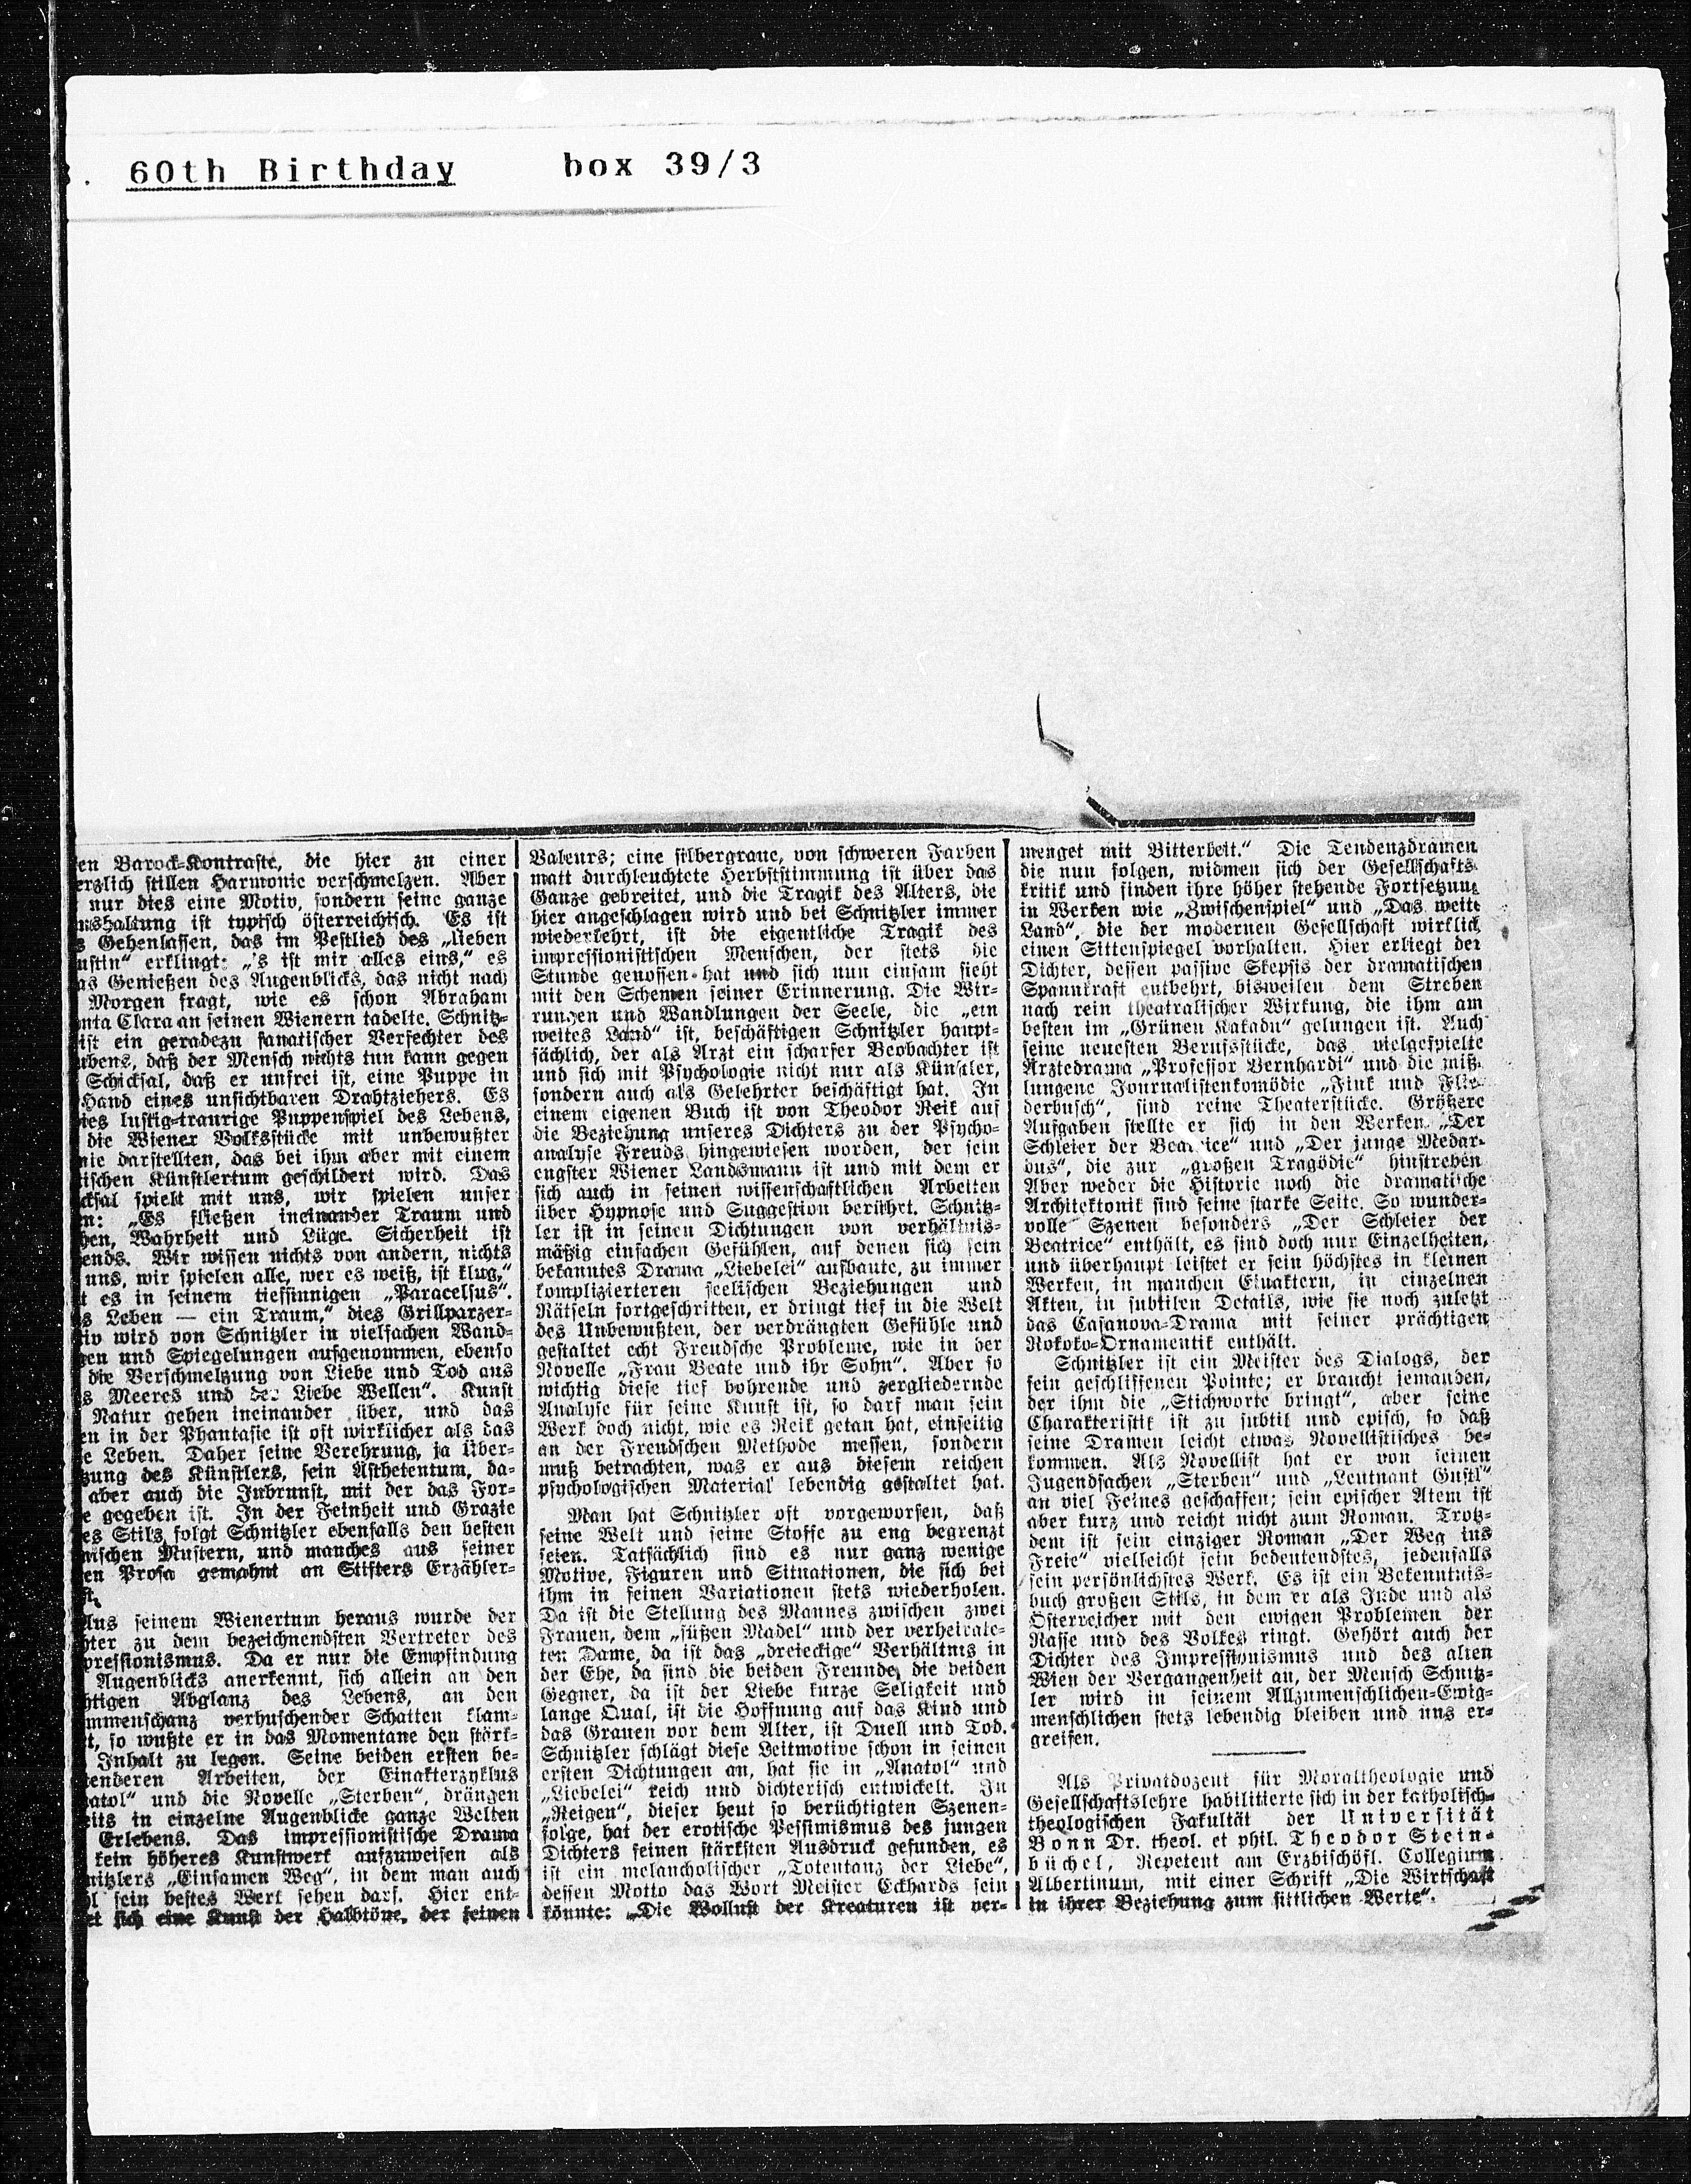 60th Birthday box 39/3
en Barock-Kontraste, die hier zu einer
erzlich stillen Harmonie verschmelzen. Aber
nur dies eine Motiv, sondern seine ganze
nshaltung ist typisch österreichisch. Es ist
s Gehenlassen, das im Pestlied des „lieben
ustin“ erklingt: „'s ist mir alles eins,“ es
as Genießen des Augenblicks, das nicht nach
Morgen fragt, wie es schon Abraham
nta Clara an seinen Wienern tadelte. Schnitz-
ist ein geradezu fanatischer Verfechter des
ubens, daß der Mensch nichts tun kann gegen
Schicksal, daß er unfrei ist, eine Puppe in
Hand eines unsichtbaren Drahtziehers. Es
ies lustig-traurige Puppenspiel des Lebens,
die Wiener Volksstücke mit unbewußter
nie darstellten, das bei ihm aber mit einem
tischen Künstlertum geschildert wird. Das
cksal spielt mit uns, wir spielen unser
en: „Es fließen ineinander Traum und
hen, Wahrheit und Lüge. Sicherheit ist
ends. Wir wissen nichts von andern, nichts
uns, wir spielen alle, wer es weiß, ist klug,“
t es in seinem tiefsinnigen „Paracelsus“.
s Leben — ein Traum,“ dies Grillparzer-
tiv wird von Schnitzler in vielfachen Wand-
gen und Spiegelungen aufgenommen, ebenso
die Verschmelzung von Liebe und Tod aus
s Meeres und der Liebe Wellen“. Kunst
Natur gehen ineinander über, und das
en in der Phantasie ist oft wirklicher als das
e Leben. Daher seine Verehrung, ja Über-
zung des Künstlers, sein Ästhetentum, da-
aber auch die Inbrunst, mit der das For-
e gegeben ist. In der Feinheit und Grazie
es Stils folgt Schnitzler ebenfalls den besten
nischen Mustern, und manches aus seiner
en Prosa gemahnt an Stifters Erzähler-
st.
Aus seinem Wienertum heraus wurde der
hter zu dem bezeichnendsten Vertreter des
pressionismus. Da er nur die Empfindung
Augenblicks anerkennt, sich allein an den
htigen Abglanz des Lebens, an den
mmenschanz vorhuschender Schatten klam-
t, so wußte er in das Momentane den stärk-
Inhalt zu legen. Seine beiden ersten be-
tenderen Arbeiten, der Einakterzyklus
atol“ und die Novelle „Sterben“, drängen
eits in einzelne Augenblicke ganze Welten
Erlebens. Das impressionistische Drama
kein höheres Kunstwerk aufzuweisen als
nitzlers „Einsamen Weg“, in dem man auch
l sein bestes Werk sehen darf. Hier ent-
et sich eine Kunst der Halbtöne, der feinen
Valeurs; eine silbergraue, von schweren Farben
matt durchleuchtete Herbststimmung ist über das
Ganze gebreitet, und die Tragik des Alters, die
hier angeschlagen wird und bei Schnitzler immer
wiederkehrt, ist die eigentliche Tragik des
impressionistischen Menschen, der stets die
Stunde genossen hat und sich nun einsam sieht
mit den Schemen seiner Erinnerung. Die Wir-
rungen und Wandlungen der Seele, die „ein
weites Land“ ist, beschäftigen Schnitzler haupt-
sächlich, der als Arzt ein scharfer Beobachter ist
und sich mit Psychologie nicht nur als Künstler,
sondern auch als Gelehrter beschäftigt hat. In
einem eigenen Buch ist von Theodor Reik auf
die Beziehung unseres Dichters zu der Psycho-
analyse Freuds hingewiesen worden, der sein
engster Wiener Landsmann ist und mit dem er
sich auch in seinen wissenschaftlichen Arbeiten
über Hypnose und Suggestion berührt. Schnitz-
ler ist in seinen Dichtungen von verhältnis-
mäßig einfachen Gefühlen, auf denen sich sein
bekanntes Drama „Liebelei“ aufbaute, zu immer
komplizierteren seelischen Beziehungen und
Rätseln fortgeschritten, er dringt tief in die Welt
des Unbewußten, der verdrängten Gefühle und
gestaltet echt Freudsche Probleme, wie in der
Novelle „Frau Beate und ihr Sohn“. Aber so
wichtig diese tief bohrende und zergliedernde
Analyse für seine Kunst ist, so darf man sein
Werk doch nicht, wie es Reik getan hat, einseitig
an der Freudschen Methode messen, sondern
muß betrachten, was er aus diesem reichen
psychologischen Material lebendig gestaltet hat.
Man hat Schnitzler oft vorgeworfen, daß
seine Welt und seine Stoffe zu eng begrenzt
seien. Tatsächlich sind es nur ganz wenige
Motive, Figuren und Situationen, die sich bei
ihm in seinen Variationen stets wiederholen.
Da ist die Stellung des Mannes zwischen zwei
Frauen, dem „süßen Mädel“ und der verheirate-
ten Dame, da ist das „dreieckige“ Verhältnis in
der Ehe, da sind die beiden Freunde, die beiden
Gegner, da ist der Liebe kurze Seligkeit und
lange Qual, ist die Hoffnung auf das Kind und
das Grauen vor dem Alter, ist Duell und Tod.
Schnitzler schlägt diese Leitmotive schon in seinen
ersten Dichtungen an, hat sie in „Anatol“ und
„Liebelei“ reich und dichterisch entwickelt. In
„Reigen“, dieser heut so berüchtigten Szenen-
folge, hat der erotische Pessimismus des jungen
Dichters seinen stärksten Ausdruck gefunden, es
ist ein melancholischer „Totentanz der Liebe“,
dessen Motto das Wort Meister Eckhards sein
könnte: „Die Wollust der Kreaturen ist ver-
menget mit Bitterkeit.“ Die Tendenzdramen
die nun folgen, widmen sich der Gesellschafts-
kritik und finden ihre höher stehende Fortsetzung
in Werken wie „Zwischenspiel“ und „Das weite
Land“, die der modernen Gesellschaft wirklich
einen Sittenspiegel vorhalten. Hier erliegt der
Dichter, dessen passive Skepsis der dramatischen
Spannkraft entbehrt, bisweilen dem Streben
nach rein theatralischer Wirkung, die ihm am
besten im „Grünen Kakadu“ gelungen ist. Auch
seine neuesten Berufsstücke, das vielgespielte
Ärztedrama „Professor Bernhardi“ und die miß-
lungene Journalistenkomödie „Fink und Flie-
derbusch“, sind reine Theaterstücke. Größere
Aufgaben stellte er sich in den Werken „Der
Schleier der Beatrice“ und „Der junge Medar-
dus“, die zur „großen Tragödie“ hinstreben
Aber weder die Historie noch die dramatische
Architektonik sind seine starke Seite. So wunder-
volle Szenen besonders „Der Schleier der
Beatrice“ enthält, es sind doch nur Einzelheiten,
und überhaupt leistet er sein höchstes in kleinen
Werken, in manchen Einaktern, in einzelnen
Akten, in subtilen Details, wie sie noch zuletzt
das Casanova-Drama mit seiner prächtigen
Rokoko-Ornamentik enthält.
Schnitzler ist ein Meister des Dialogs, der
fein geschliffenen Pointe; er braucht jemanden,
der ihm die „Stichworte bringt“, aber seine
Charakteristik ist zu subtil und episch, so daß
seine Dramen leicht etwas Novellistisches be-
kommen. Als Novellist hat er von seinen
Jugendsachen „Sterben“ und „Leutnant Gustl“
an viel Feines geschaffen; sein epischer Atem ist
aber kurz und reicht nicht zum Roman. Trotz-
dem ist sein einziger Roman „Der Weg ins
Freie“ vielleicht sein bedeutendstes, jedenfalls
sein persönlichstes Werk. Es ist ein Bekenntnis-
buch großen Stils, in dem er als Jude und als
Österreicher mit den ewigen Problemen der
Rasse und des Volkes ringt. Gehört auch der
Dichter des Impressionismus und des alten
Wien der Vergangenheit an, der Mensch Schnitz-
ler wird in seinem Allzumenschlichen-Ewig-
menschlichen stets lebendig bleiben und uns er-
greifen.
Als Privatdozent für Moraltheologie und
Gesellschaftslehre habilitierte sich in der katholisch-
theologischen Fakultät der Universität
Bonn Dr. theol. et phil. Theodor Stein-
büchel, Repetent am Erzbischöfl. Collegium
Albertinum, mit einer Schrift „Die Wirtschaft
in ihrer Beziehung zum sittlichen Werte“.